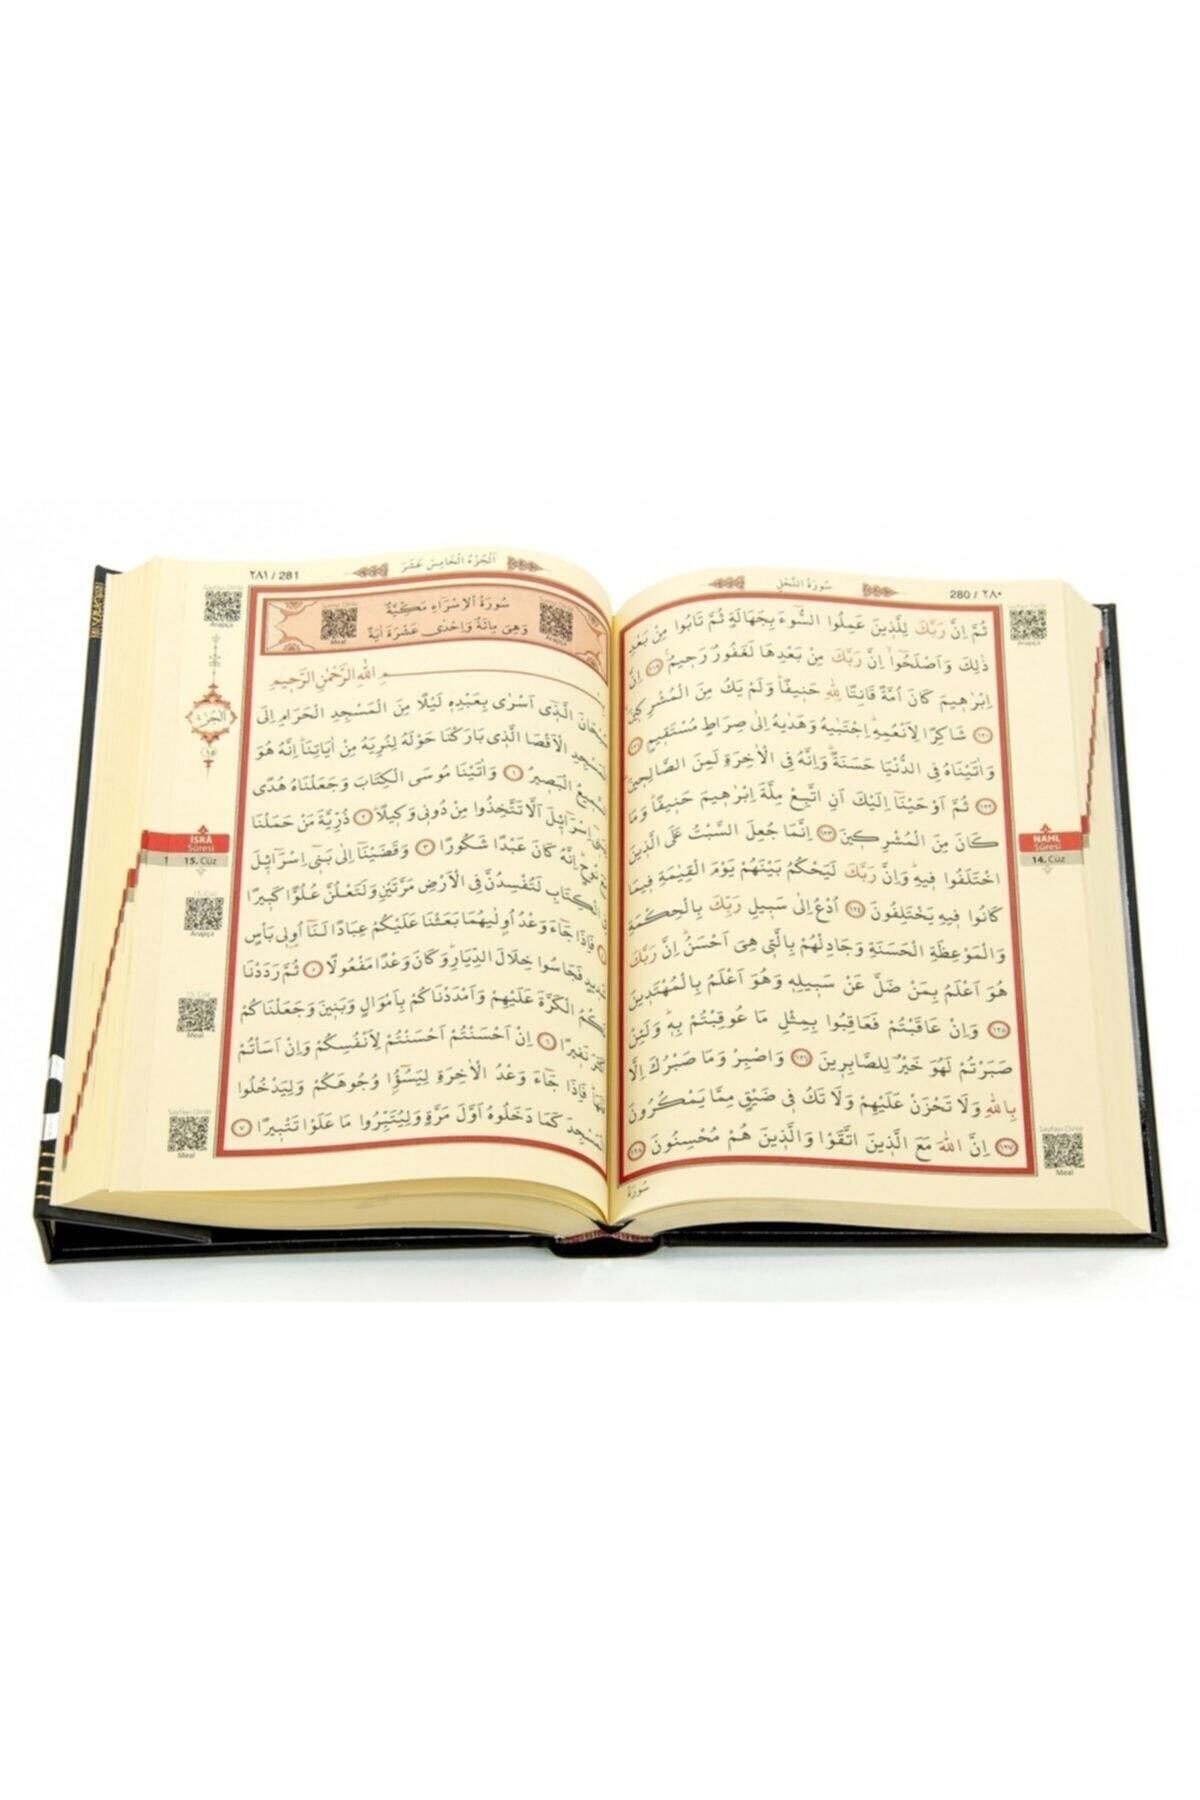 سُورَةُ النَّحْلِ
280 / ٢٨٠
ثُمَّ اِنَّ رَبَّكَ لِلَّذِينَ عَمِلُوا السُّٓوءَ بِجَهَالَةٍ ثُمَّ تَابُوا مِنْ بَعْدِ
ذٰلِكَ وَاَصْلَحُٓوا اِنَّ رَبَّكَ مِنْ بَعْدِهَا لَغَفُورٌ رَحِيمٌ ﴿١١٩﴾ اِنَّ
اِبْرٰهِيمَ كَانَ اُمَّةً قَانِتًا لِلّٰهِ حَنِيفًاۜ وَلَمْ يَكُ مِنَ الْمُشْرِكِينَۙ
﴿١٢٠﴾ شَاكِرًا لِاَنْعُمِهِۜ اِجْتَبٰيهُ وَهَدٰيهُ اِلٰى صِرَاطٍ مُسْتَقِيمٍ ﴿١٢١﴾
وَاٰتَيْنَاهُ فِي الدُّنْيَا حَسَنَةًۜ وَاِنَّهُ فِي الْاٰخِرَةِ لَمِنَ الصَّالِحِينَۜ
﴿١٢٢﴾ ثُمَّ اَوْحَيْنَٓا اِلَيْكَ اَنِ اتَّبِعْ مِلَّةَ اِبْرٰهِيمَ حَنِيفًاۜ وَمَا
كَانَ مِنَ الْمُشْرِكِينَ ﴿١٢٣﴾ اِنَّمَا جُعِلَ السَّبْتُ عَلَى الَّذِينَ
اخْتَلَفُوا فِيهِۜ وَاِنَّ رَبَّكَ لَيَحْكُمُ بَيْنَهُمْ يَوْمَ الْقِيٰمَةِ فِيمَا
كَانُوا فِيهِ يَخْتَلِفُونَ ﴿١٢٤﴾ اُدْعُ اِلٰى سَبِيلِ رَبِّكَ بِالْحِكْمَةِ
وَالْمَوْعِظَةِ الْحَسَنَةِ وَجَادِلْهُمْ بِالَّتِي هِيَ اَحْسَنُۜ اِنَّ رَبَّكَ
هُوَ اَعْلَمُ بِمَنْ ضَلَّ عَنْ سَبِيلِهِ وَهُوَ اَعْلَمُ بِالْمُهْتَدِينَ
﴿١٢٥﴾ وَاِنْ عَاقَبْتُمْ فَعَاقِبُوا بِمِثْلِ مَا عُوقِبْتُمْ بِهِۜ وَلَئِنْ
صَبَرْتُمْ لَهُوَ خَيْرٌ لِلصَّابِرِينَ ﴿١٢٦﴾ وَاصْبِرْ وَمَا صَبْرُكَ اِلَّا
بِاللّٰهِ وَلَا تَحْزَنْ عَلَيْهِمْ وَلَا تَكُ فِي ضَيْقٍ مِمَّا يَمْكُرُونَ
﴿١٢٧﴾ اِنَّ اللّٰهَ مَعَ الَّذِينَ اتَّقَوْا وَالَّذِينَ هُمْ مُحْسِنُونَ ﴿١٢٨﴾
سُورَةُ
Arapça
NAHL
Sûresi
14. Cüz
Sayfayı Dinle
Meal
اَلْجُزْءُ الْخَامِسَ عَشَرَ
٢٨١ / 281
سُورَةُ الْاِسْرَٓاءِ مَكِّيَّةٌ
وَهِيَ مِائَةٌ وَاِحْدٰى عَشْرَةَ اٰيَةً
Arapça
Meal
مِ اللّٰهِ الرَّحْمٰنِ الرَّحِيمِ
سُبْحَانَ الَّذِٓي اَسْرٰى بِعَبْدِهِ لَيْلًا مِنَ الْمَسْجِدِ الْحَرَامِ اِلَى
الْمَسْجِدِ الْاَقْصَا الَّذِي بَارَكْنَا حَوْلَهُ لِنُرِيَهُ مِنْ اٰيَاتِنَاۜ اِنَّهُ هُوَ
السَّمِيعُ الْبَصِيرُ ﴿١﴾ وَاٰتَيْنَا مُوسَى الْكِتَابَ وَجَعَلْنَاهُ هُدًى
لِبَنِٓي اِسْرَٓائِلَ اَلَّا تَتَّخِذُوا مِنْ دُونِي وَكِيلًاۜ ﴿٢﴾ ذُرِّيَّةَ مَنْ حَمَلْنَا
مَعَ نُوحٍۜ اِنَّهُ كَانَ عَبْدًا شَكُورًا ﴿٣﴾ وَقَضَيْنَٓا اِلٰى بَنِٓي اِسْرَٓائِلَ
فِي الْكِتَابِ لَتُفْسِدُنَّ فِي الْاَرْضِ مَرَّتَيْنِ وَلَتَعْلُنَّ عُلُوًّا كَبِيرًا
﴿٤﴾ فَاِذَا جَٓاءَ وَعْدُ اُولٰيهُمَا بَعَثْنَا عَلَيْكُمْ عِبَادًا لَنَٓا اُولِي بَأْسٍ
شَدِيدٍ فَجَاسُوا خِلَالَ الدِّيَارِۜ وَكَانَ وَعْدًا مَفْعُولًا ﴿٥﴾ ثُمَّ رَدَدْنَا
لَكُمُ الْكَرَّةَ عَلَيْهِمْ وَاَمْدَدْنَاكُمْ بِاَمْوَالٍ وَبَنِينَ وَجَعَلْنَاكُمْ
اَكْثَرَ نَفِيرًا ﴿٦﴾ اِنْ اَحْسَنْتُمْ اَحْسَنْتُمْ لِاَنْفُسِكُمْ وَاِنْ اَسَأْتُمْ
فَلَهَاۜ فَاِذَا جَٓاءَ وَعْدُ الْاٰخِرَةِ لِيَسُٓؤُا وُجُوهَكُمْ وَلِيَدْخُلُوا
الْمَسْجِدَ كَمَا دَخَلُوهُ اَوَّلَ مَرَّةٍ وَلِيُتَبِّرُوا مَا عَلَوْا تَتْبِيرًا ﴿٧﴾
Sayfayı Dinle
Arapça
اَلْجُزْءُ
١٥
İSRÂ
Sûresi
1 15. Cüz
15. Cüz
Arapça
15. Cüz
Meal
Sayfayı Dinle
Meal